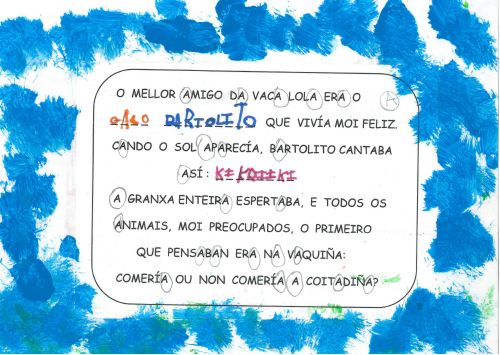 O MELLOR AMIGO DA VACA LOLA ERA O A
GALO BARTOLITO QUE VIVÍA MOI FELIZ.
CANDO O SOL APARECÍA, BARTOLITO CANTABA
ASÍ:
A GRANXA ENTEIRA ESPERTABA, E TODOS OS
ANIMAIS, MOI PREOCUPADOS, O PRIMEIRO
QUE PENSABAN ERA NA VAQUIÑA:
COMERÍA OU NON COMERÍA A COITADIÑA?